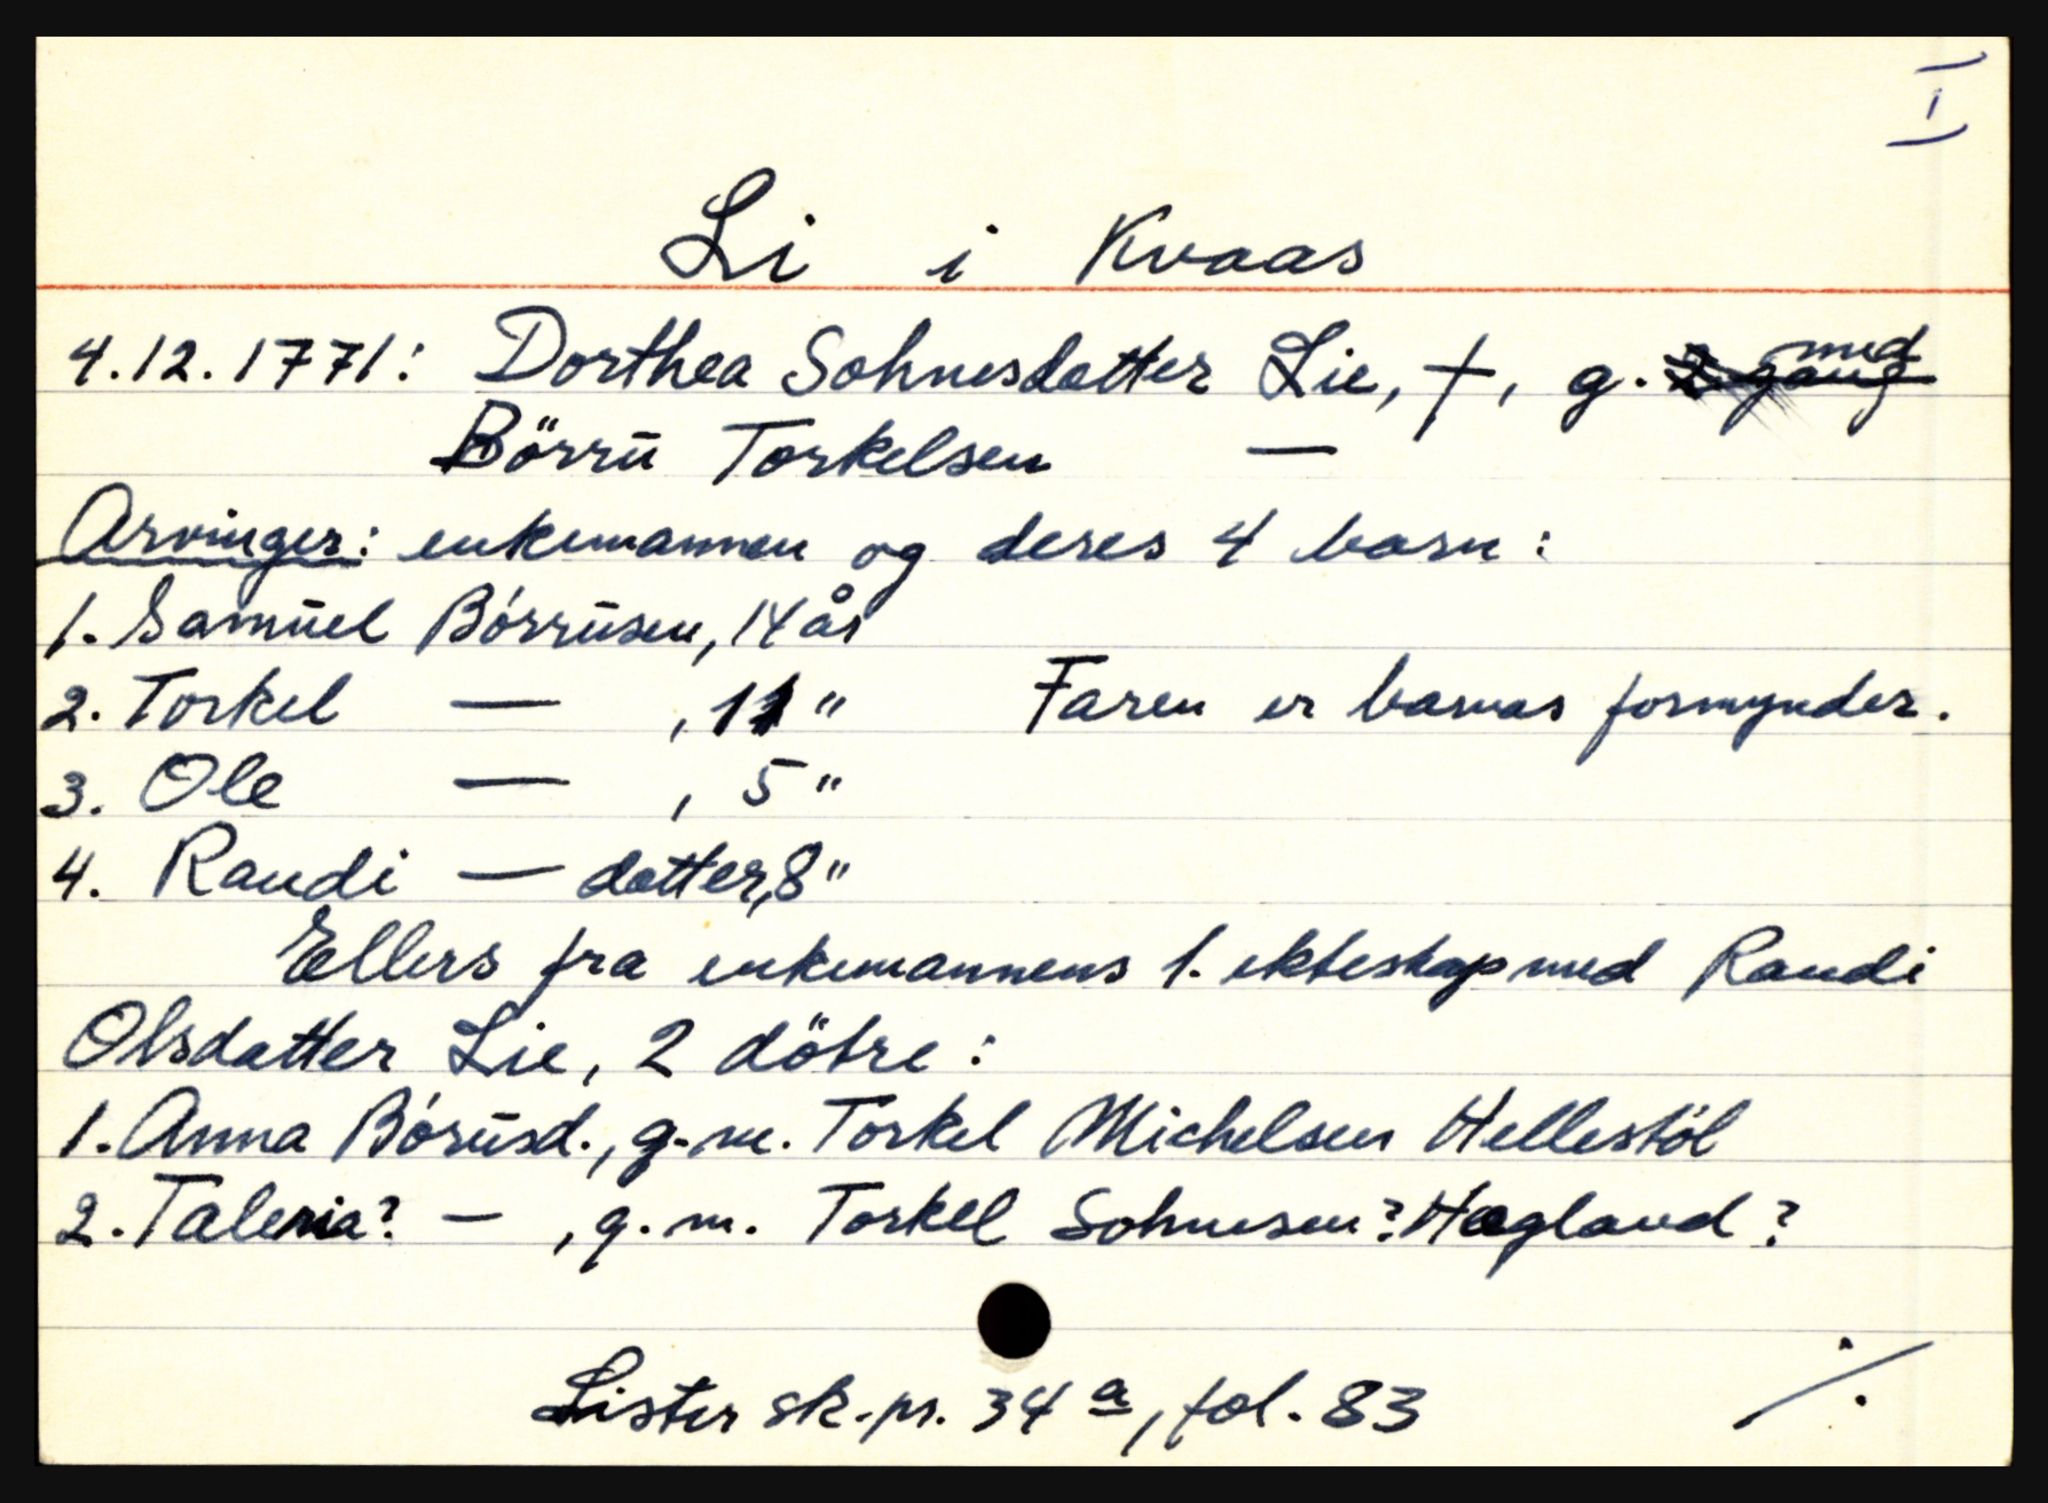 I
Li i Kvaas
4.12.1771: Dorthea Sohnesdatter Lie, †, g. ~~2 gang~~ med
Börrü Torkelsen —
Arvinger: enkemannen og deres 4 barn:
1. Samüel Börrüsen, 14 år
2. Torkel — , 11 " Faren er barnas formynder.
3. Ole — , 5 "
4. Randi — datter, 8 "
Ellers fra enkemannens 1. ekteskap med Randi
Olsdatter Lie, 2 döbre:
1. Anna Börüsd., g.m. Torkel Michelsen Hellestöl
2. Talenia? — , g.m. Torkel Sohnesen? Hægland?
Lister sk.pr. 34 a, fol. 83
./.